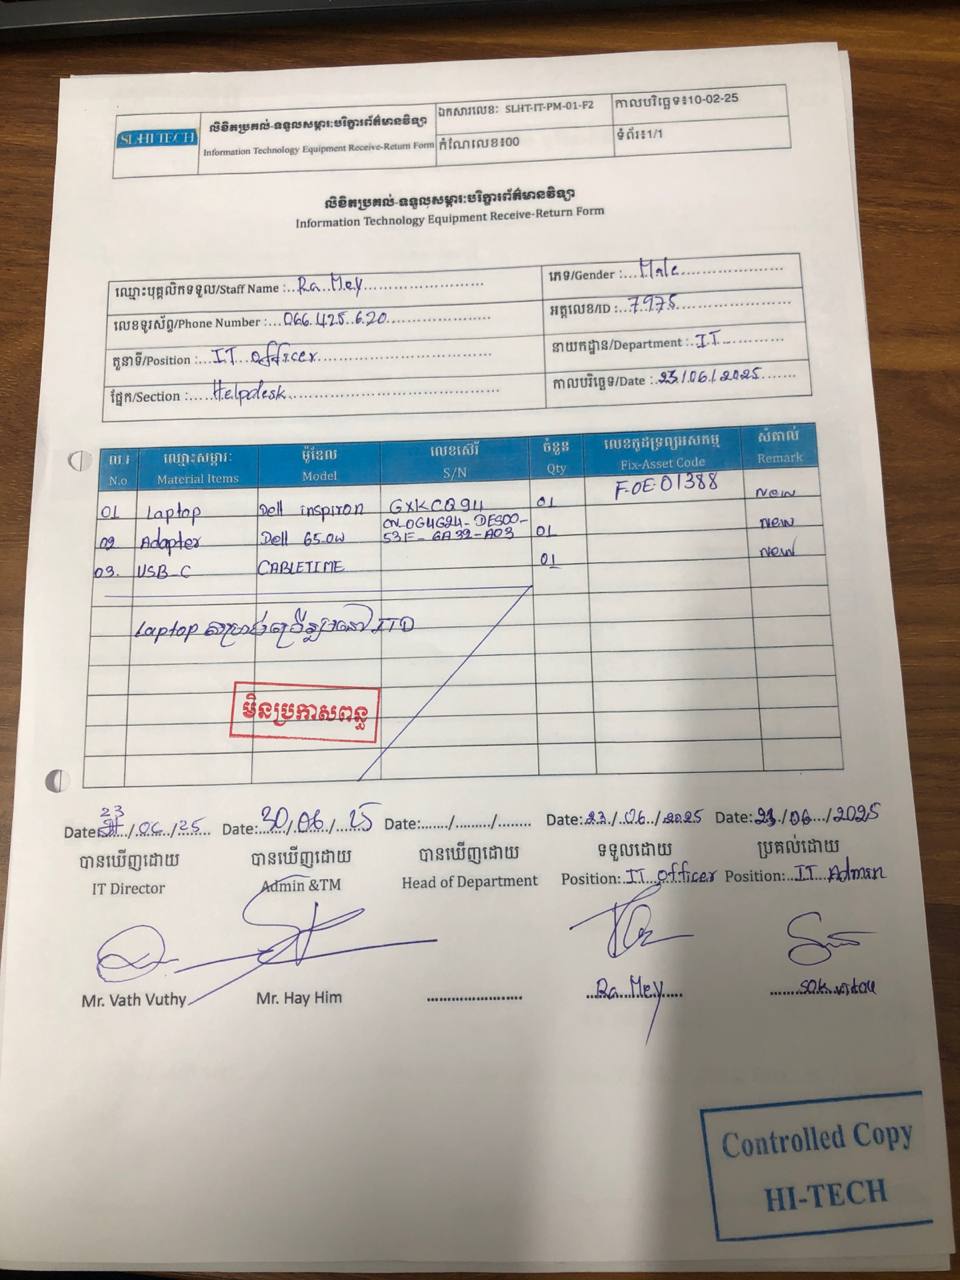 SLHI TECH
លិខិតប្រគល់-ទទួលសម្ភារៈបរិក្ខារព័ត៌មានវិទ្យា
Information Technology Equipment Receive-Return Form
ឯកសារលេខៈ SLHT-IT-PM-01-F2
កាលបរិច្ឆេទ៖10-02-25
កំណែលេខ៖00
ទំព័រ៖1/1
លិខិតប្រគល់-ទទួលសម្ភារៈបរិក្ខារព័ត៌មានវិទ្យា
Information Technology Equipment Receive-Return Form
ឈ្មោះបុគ្គលិកទទួល/Staff Name :...Ra Mey
ភេទ/Gender :...Male
លេខទូរស័ព្ទ/Phone Number :...066.425.6.20
អត្តលេខ/ID :...7975
តួនាទី/Position :...IT officer
នាយកដ្ឋាន/Department :...IT
ផ្នែក/Section :...Helpdesk
កាលបរិច្ឆេទ/Date :.23/06/2025
ល.រ ឈ្មោះសម្ភារៈ ម៉ូឌែល លេខស៊េរី ចំនួន លេខកូដទ្រព្យអសកម្ម សំគាល់
N.o Material Items Model S/N Qty Fix-Asset Code Remark
01 Laptop Dell inspiron GXKCQ94 01 F-OE-01388 New
02 Adapter Dell 65.0W CN-0G4G24-DES00-53F-6A32-A03 01 New
03. USB-C CABLETIME 01 New
Laptop សម្រាប់ប្រើ
មិនប្រកាសពន្ធ
Date: 23/06/25 Date: 30/06/25 Date:......./......../....... Date: 23/06/2025 Date: 23/06/2025
បានឃើញដោយ បានឃើញដោយ បានឃើញដោយ ទទួលដោយ ប្រគល់ដោយ
IT Director Admin &TM Head of Department Position: IT officer Position: IT Admin
Mr. Vath Vuthy Mr. Hay Him Ra Mey SOK
Controlled Copy
HI-TECH